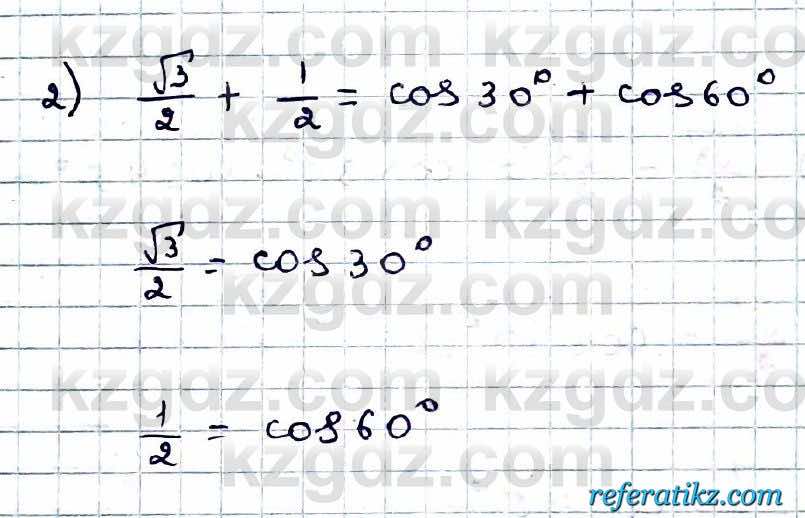 kzgdz.com kzgdz.com
2) √3/2 + 1/2 = cos 30° + cos 60°
kzgdz.com
kzgdz.com kzgdz.com
√3/2 = cos 30°
kzgdz.com
kzgdz.com kzgdz.com
1/2 = cos 60°
kzgdz.com
referatikz.com